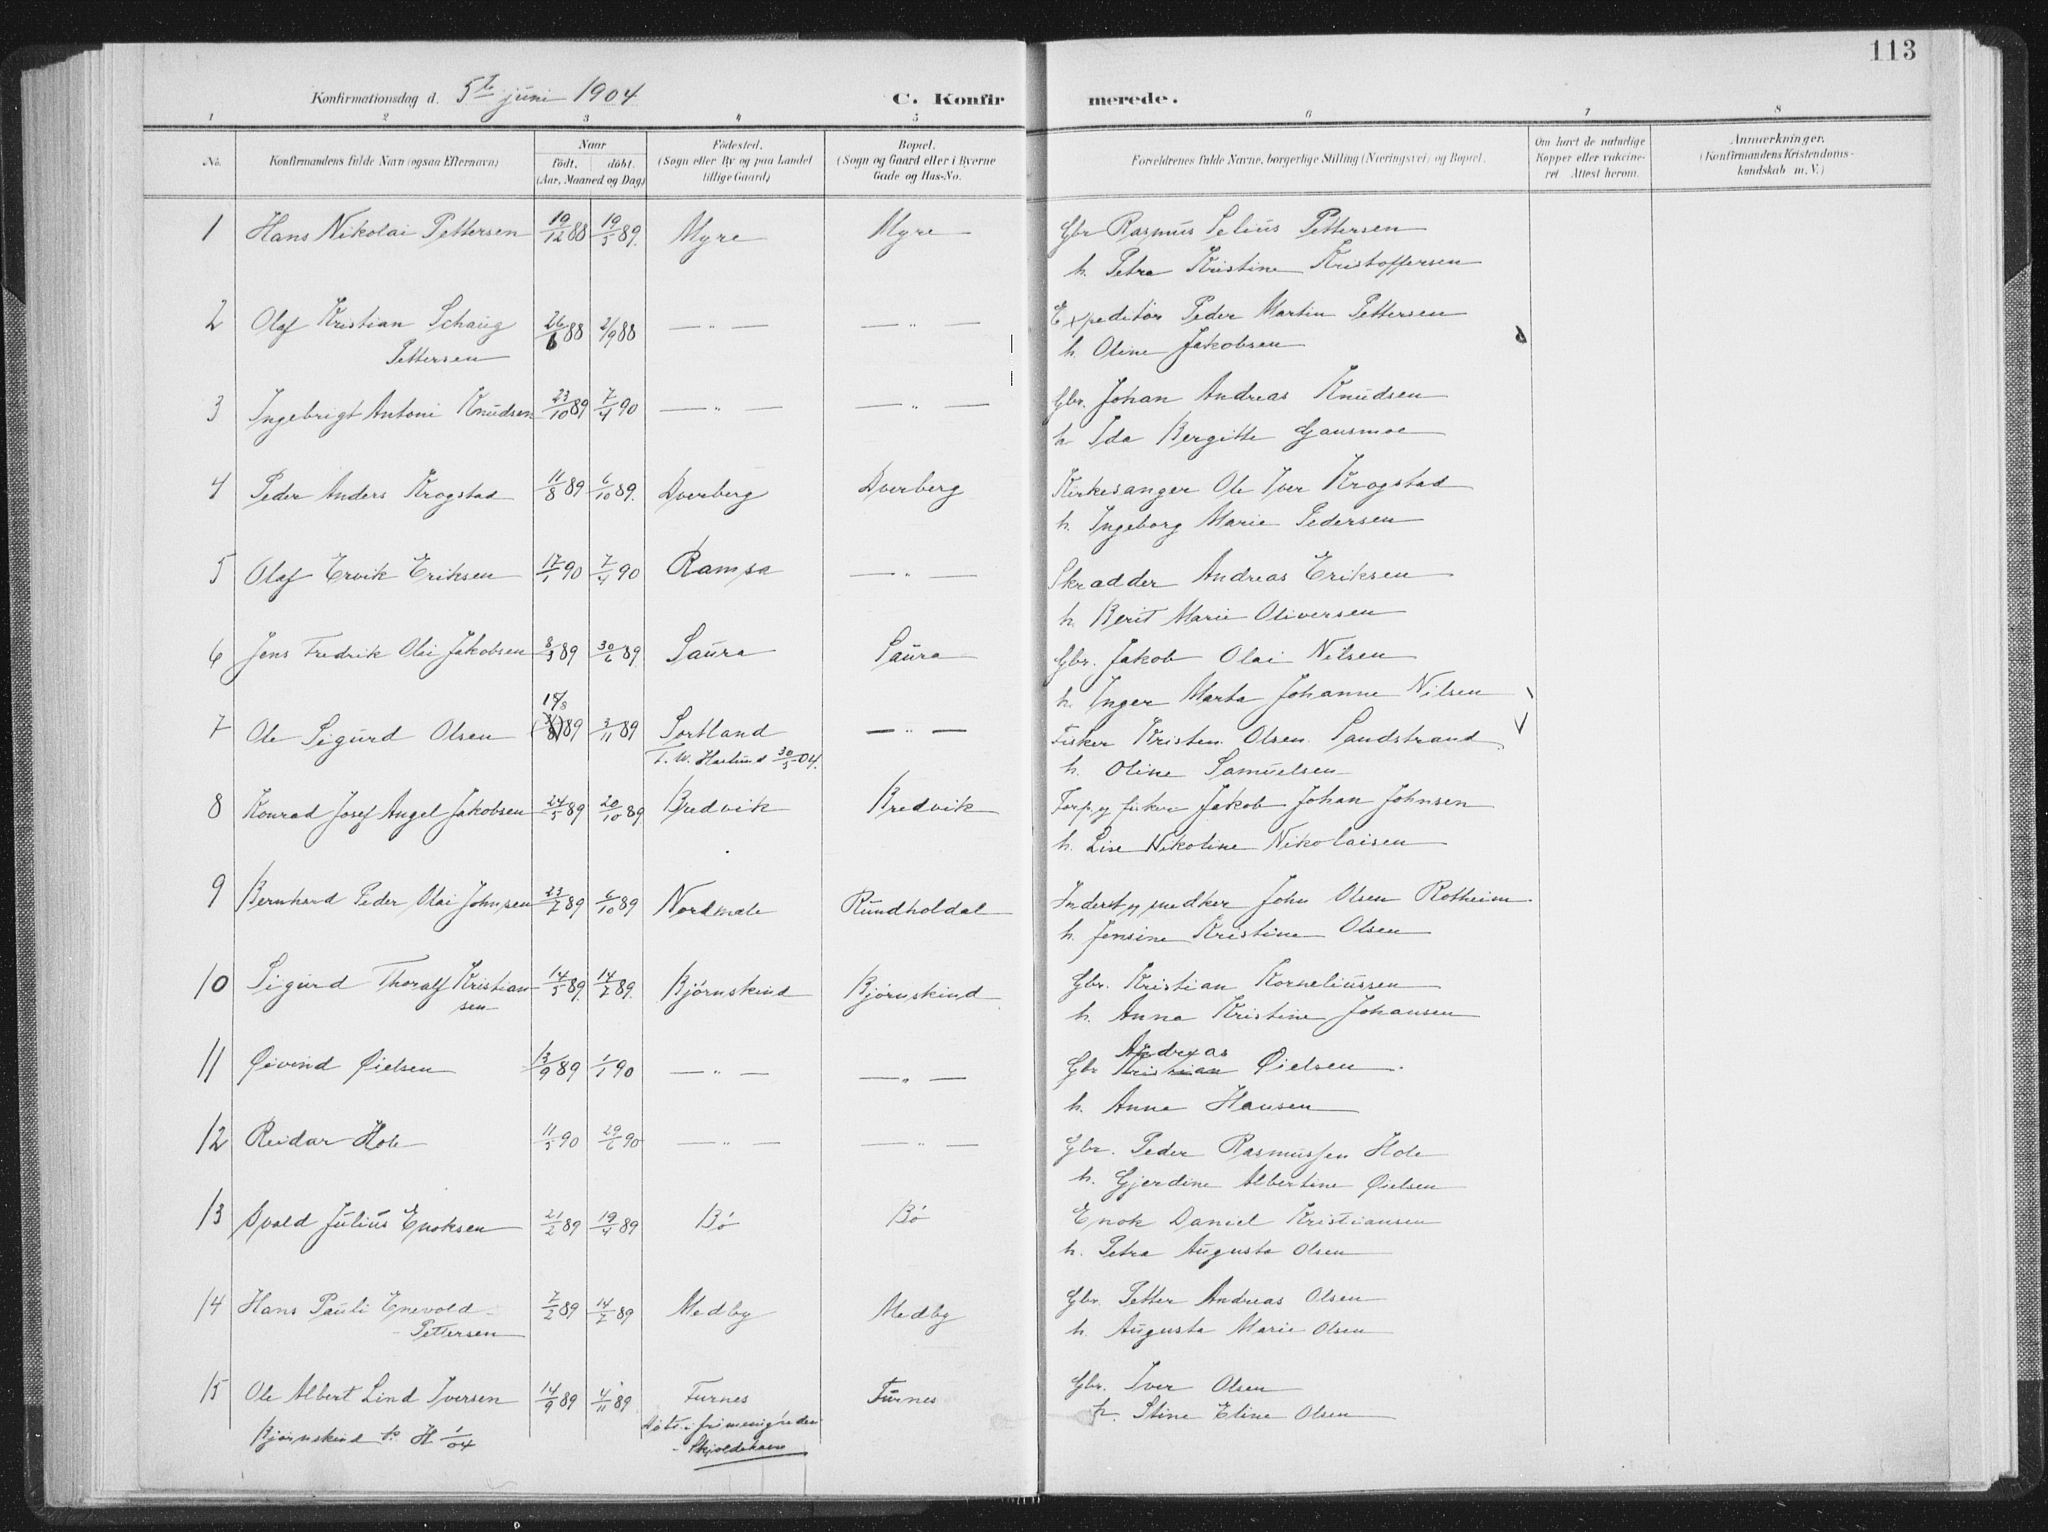 113
Konfirmationsdag d. 5te juni 1904
C. Konfirmerede.
1 2 3 4 5 6 7 8
No. Konfirmandens fulde Navn (ogsaa Efternavn) Naar født. døbt. (Aar, Maaned og Dag) Fødested. (Sogn eller By og paa Landet tillige Gaard) Bopæl. (Sogn og Gaard eller i Byerne Gade og Hus-No. Forældrenes fulde Navne, borgerlige Stilling (Næringsvei) og Bopæl. Om havt de naturlige Kopper eller vaccineret. Attest herom. Anmærkninger. (Konfirmandens Kristendomskundskab m. V.)
1 Hans Nikolai Pettersen 19/12 88 19/5 89. Myre Myre Gbr Rasmus Selius Pettersen
h. Petra Kristine Kristoffersen
2 Olaf Kristian Schaug 26/6 88 2/9 88 — " — — " — Expeditør Peder Martin Pettersen
Pettersen h. Oline Jakobsen
3 Ingebrigt Antoni Knudsen 23/10 89 7/4 90 — " — — " — Gbr. Johan Andreas Knudsen
h. Ida Bergitte Gausmoe
4 Peder Anders Krogstad 11/8 89 6/10 89. Dverberg Dverberg Kirkesanger Ole Iver Krogstad
h. Ingeborg Marie Pedersen
5 Olaf Ervik Eriksen 17/1 90 7/4 90 Ramsa — " — Skrædder Andreas Eriksen
h. Berit Marie Oliversen
6 Jens Fredrik Olai Jakobsen 8/3 89 30/6 89. Saura Saura Gbr. Jakob Olai Nilsen
h. Inger Marta Johanne Nilsen
7 Ole Sigurd Olsen 89 3/11 89 Sortland — " — Fisker Kristen Olsen Sandstrand
30/5 04. h. Oline Samuelsen
8 Konrad Josef Angel Jakobsen 24/5 89 20/10 89 Bredvik Bredvik Jakob Johan Johnsen
h. Lise Nikoline Nikolaisen
9 Bernhard Peder Olai Johnsen 23/7 89 6/10 89 Nordmele Rundholdal Inderst og snedker John Olsen Rotheim
h. Jensine Kristine Olsen
10 Sigurd Thoralf Kristian- 14/5 89. 14/7 89. Bjørnskind Bjørnskind Gbr. Kristian Korneliussen
sen h. Anna Kristine Johansen
11 Øivind Øielsen 13/9 89 1/1 90 — " — — " — Gbr Kristian Andreas Øielsen
h. Anne Hansen
12 Reidar Hole 11/5 90 29/6 90 — " — — " — Gbr. Peder Rasmussen Hole
h. Gjerdine Albertine Øielsen
13 Osvald Julius Enoksen 21/2 89 19/4 89 Bø Bø Enok Daniel Kristiansen
h. Petra Augusta Olsen
14 Hans Pauli Enevold- 7/2 89 14/7 89 Medby Medby Gbr. Petter Andreas Olsen
Pettersen h. Augusta Marie Olsen
15 Ole Albert Lind Iversen 14/9 89 4/11 89 Furnes Furnes Gbr. Iver Olsen
Døbt i frimenigheden h. Stine Eline Olsen
Bjørnskind 1/04